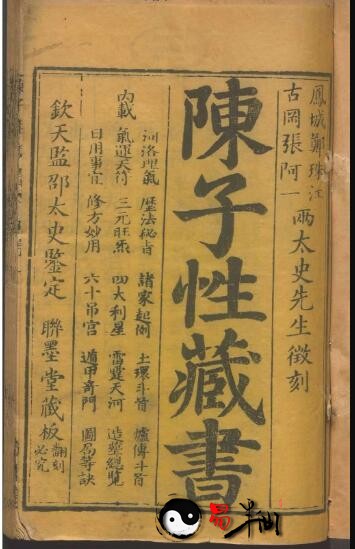 鳳城鄭珠江
古岡張阿一
兩太史先生徵刻
陳子性藏書
內載
河洛理氣 歷法秘旨 諸家起例 土環斗首 爐傳斗首
氣運天符 三元旺氣 四大利星 雷霆天河 造葬總覽
日用事宜 修方妙用 六十吊宮 遁甲奇門 圖局等訣
欽天監邵太史鑒定
聯墨堂藏板
翻刻必究
易